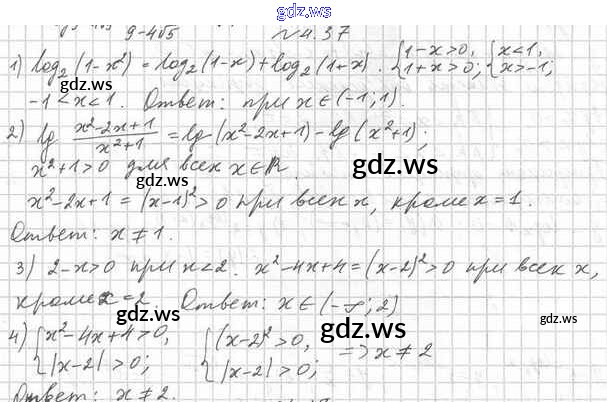 gdz.ws
9-4√5 №4.37
1) log₂(1-x²) = log₂(1-x) + log₂(1+x). {1-x>0, 1+x>0; {x<1, x>-1;
-1<x<1. Ответ: при x∈(-1;1).
2) lg (x²-2x+1)/(x²+1) = lg(x²-2x+1) - lg(x²+1);
x²+1>0 для всех x∈R.
gdz.ws gdz.ws
x²-2x+1 = (x-1)²>0 при всех x, кроме x=1.
Ответ: x≠1.
3) 2-x>0 при x<2. x²-4x+4=(x-2)²>0 при всех x,
кроме x=2. Ответ: x∈(-∞; 2)
gdz.ws gdz.ws gdz.ws
4) {x²-4x+4>0, |x-2|>0; {(x-2)²>0, |x-2|>0; => x≠2
Ответ: x≠2.